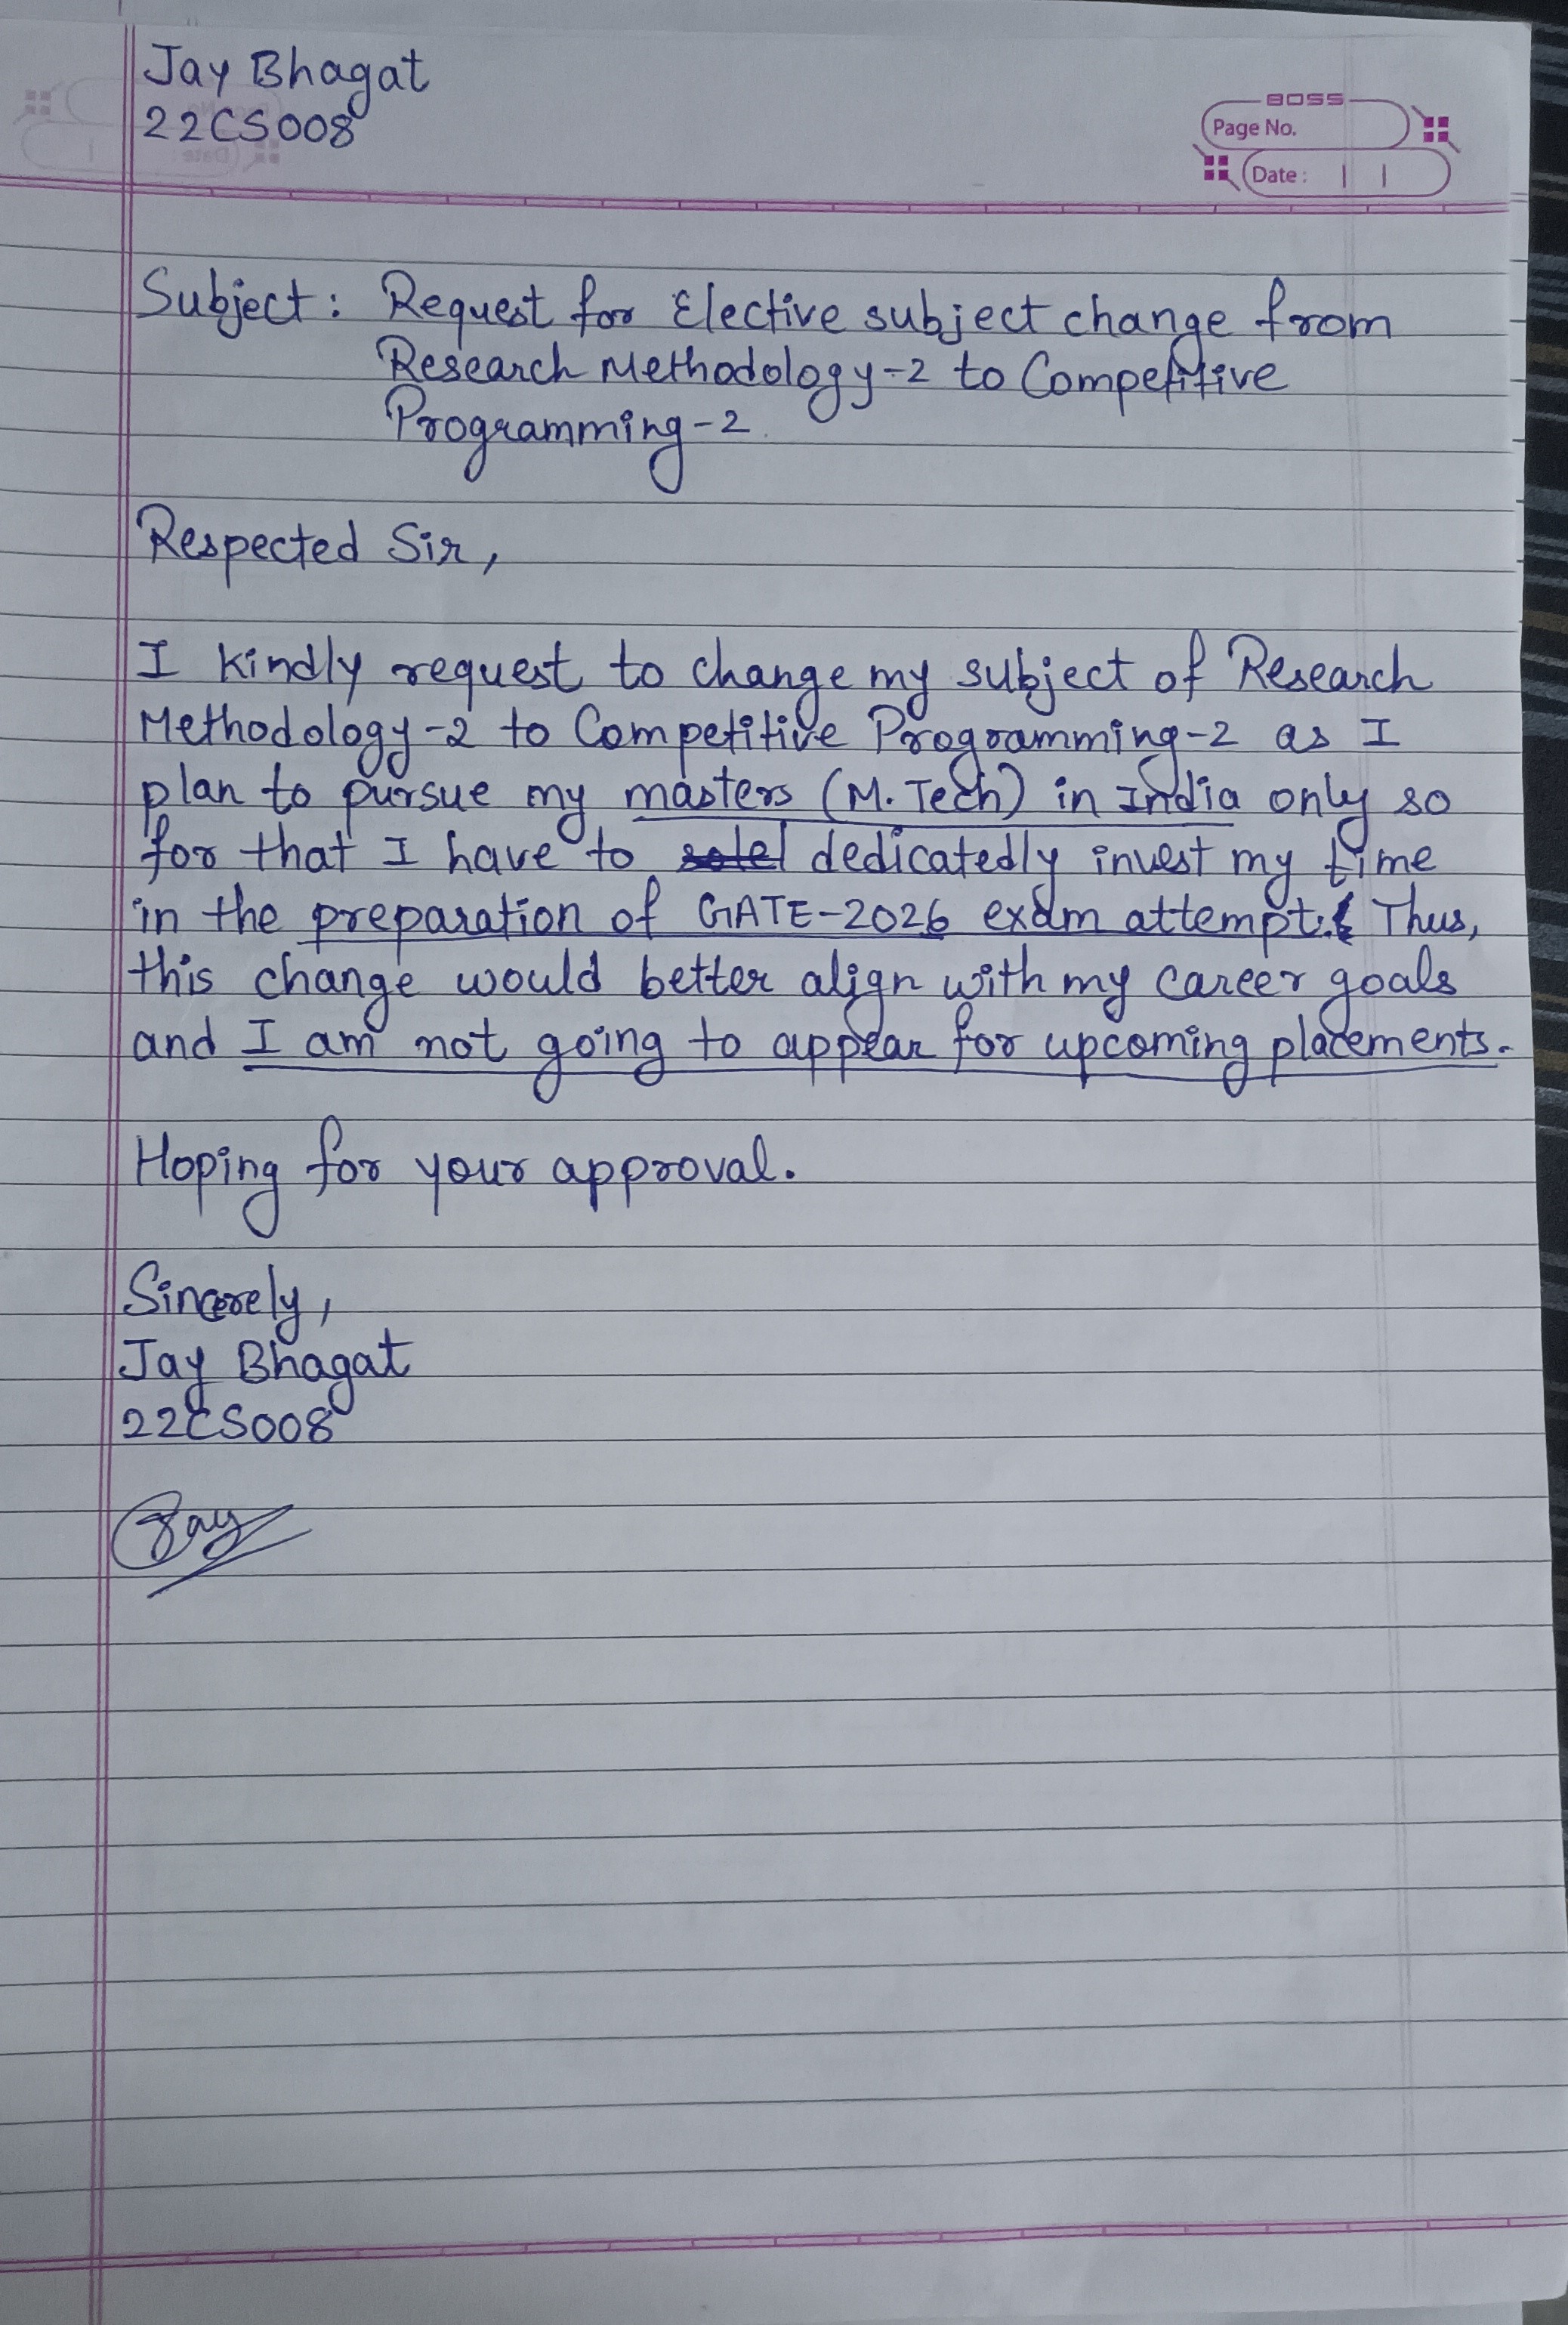 Jay Bhagat
22CS008
BOSS
Page No.
Date :
Subject : Request for Elective subject change from
Research Methodology-2 to Competitive
Programming-2
Respected Sir,
I kindly request to change my subject of Research
Methodology-2 to Competitive Programming-2 as I
plan to pursue my masters (M. Tech) in India only so
for that I have to dedicatedly invest my time
in the preparation of GATE-2026 exam attempt. Thus,
this change would better align with my career goals
and I am not going to appear for upcoming placements.
Hoping for your approval.
Sincerely,
Jay Bhagat
22CS008
Jay